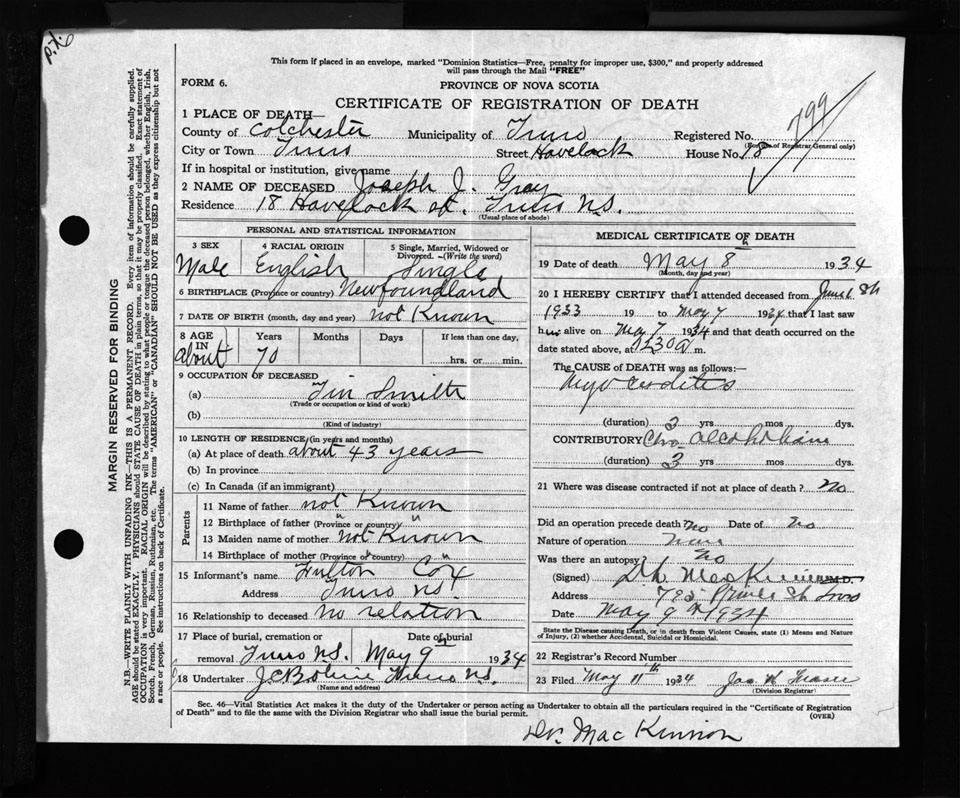 This form if placed in an envelope, marked "Dominion Statistics—Free, penalty for improper use, $300," and properly addressed
will pass through the Mail "FREE"
FORM 6.
PROVINCE OF NOVA SCOTIA
CERTIFICATE OF REGISTRATION OF DEATH
799
1 PLACE OF DEATH—
County of Colchester Municipality of Truro Registered No.
(For use of Registrar General only)
City or Town Truro Street Havelock House No. 18
If in hospital or institution, give name
2 NAME OF DECEASED Joseph J. Gray
Residence 18 Havelock st. Truro N.S.
(Usual place of abode)
PERSONAL AND STATISTICAL INFORMATION
3 SEX 4 RACIAL ORIGIN 5 Single, Married, Widowed or
Divorced. —(Write the word)
Male English Single
6 BIRTHPLACE (Province or country) Newfoundland
7 DATE OF BIRTH (month, day and year) not Known
8 AGE IN Years Months Days If less than one day,
about 70 hrs. or min.
9 OCCUPATION OF DECEASED
(a) Tin Smith
(Trade or occupation or kind of work)
(b)
(Kind of industry)
10 LENGTH OF RESIDENCE (in years and months)
(a) At place of death about 43 years
(b) In province
(c) In Canada (if an immigrant)
Parents
11 Name of father not Known
12 Birthplace of father (Province or country) " "
13 Maiden name of mother not Known
14 Birthplace of mother (Province or country) " "
15 Informant's name Fulton Cox
Address Truro NS.
16 Relationship to deceased no relation
17 Place of burial, cremation or Date of burial
removal Truro N.S. May 9 1934
18 Undertaker Truro N.S.
(Name and address)
MEDICAL CERTIFICATE OF DEATH
19 Date of death May 8th 1934
(Month, day and year)
20 I HEREBY CERTIFY that I attended deceased from
1933 19 to May 7 1934 that I last saw
h alive on May 7 1934 and that death occurred on the
date stated above, at m.
The CAUSE OF DEATH was as follows:—
Myocarditis
(duration) 3 yrs mos dys.
CONTRIBUTORY Chro alcoholism
(duration) 3 yrs mos dys.
21 Where was disease contracted if not at place of death? No
Did an operation precede death? No Date of No
Nature of operation None
Was there an autopsy? No
(Signed) MacKinnon M.D.
Address Prince St Truro
Date May 9th 1934
State the Disease causing Death, or in death from Violent Causes, state (1) Means and Nature
of Injury, (2) whether Accidental, Suicidal or Homicidal.
22 Registrar's Record Number
23 Filed May 11th 1934 Jas W Fraser
(Division Registrar)
Sec. 46—Vital Statistics Act makes it the duty of the Undertaker or person acting as Undertaker to obtain all the particulars required in the "Certificate of Registration
of Death" and to file the same with the Division Registrar who shall issue the burial permit.
(OVER)
Dr. MacKinnon
MARGIN RESERVED FOR BINDING
N.B.—WRITE PLAINLY WITH UNFADING INK—THIS IS A PERMANENT RECORD. Every item of information should be carefully supplied.
AGE should be stated EXACTLY. PHYSICIANS should STATE CAUSE OF DEATH in plain terms, so that it may be properly classified. Exact statement of
OCCUPATION is very important. RACIAL ORIGIN will be described by stating to what people or tongue the deceased person belonged, whether English, Irish,
Scotch, French, German, Russian, Ruthenian, etc. The terms "AMERICAN" or "CANADIAN" SHOULD NOT BE USED as they express citizenship but not
a race or people. See instructions on back of Certificate.